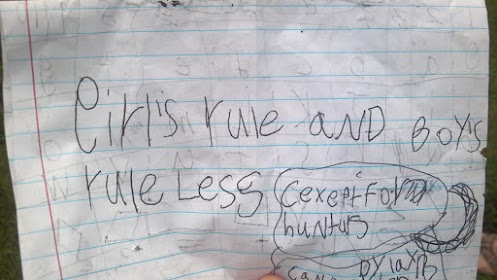 Girl's rule AND BOY'S
rule Less (exept For
huntars